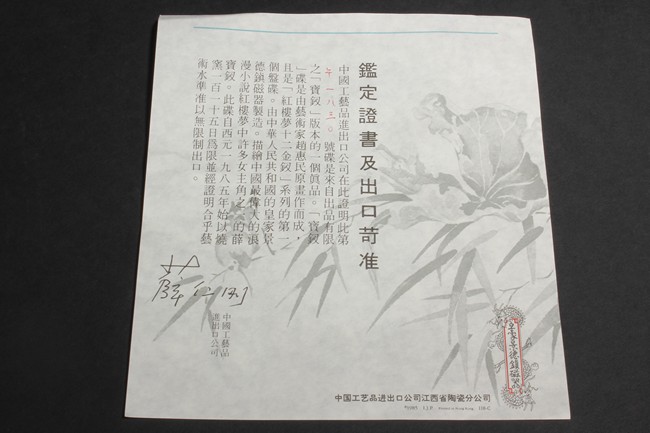 鑑定證書及出口苛准
中國工藝品進出口公司在此證明此第
號碟是來自出品有限
之「寶釵」版本的一個眞品。「寶釵
」碟是由藝術家趙惠民原畫作而成，
且是「紅樓夢十二金釵」系列的第一
個盤碟。由中華人民共和國的皇家景
德鎮磁器製造。描繪中國最偉大的浪
漫小說紅樓夢中許多女主角之一的薛
寶釵。此碟自西元一九八五年始以燒
窯一百一十五日爲限並經證明合乎藝
術水準准以無限制出口。
中國工藝品
進出口公司
皇家景德鎮磁器
中国工艺品进出口公司江西省陶瓷分公司